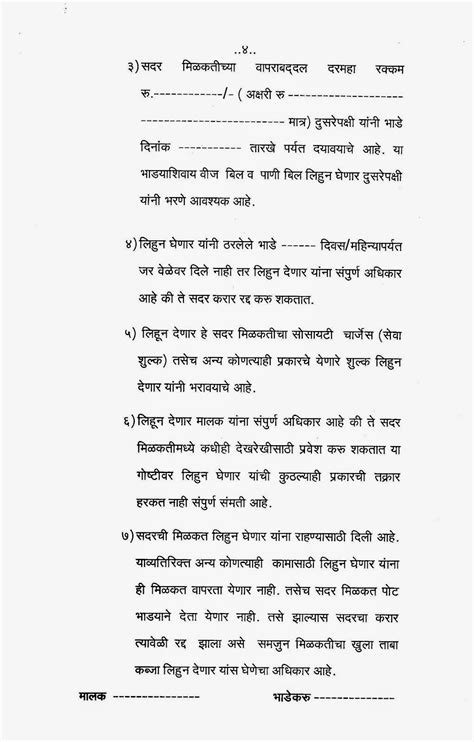 ..४..
३) सदर मिळकतीच्या वापराबद्दल दरमहा रक्कम
रु.------------/- ( अक्षरी रु --------------------
------------------------- मात्र) दुसरेपक्षी यांनी भाडे
दिनांक ----------- तारखे पर्यत दयावयाचे आहे. या
भाडयाशिवाय वीज बिल व पाणी बिल लिहुन घेणार दुसरेपक्षी
यांनी भरणे आवश्यक आहे.
४) लिहुन घेणार यांनी ठरलेले भाडे ------ दिवस/महिन्यापर्यत
जर वेळेवर दिले नाही तर लिहुन देणार यांना संपुर्ण अधिकार
आहे की ते सदर करार रद्द करु शकतात.
५) लिहून देणार हे सदर मिळकतीचा सोसायटी चार्जेस (सेवा
शुल्क) तसेच अन्य कोणत्याही प्रकारचे येणारे शुल्क लिहुन
देणार यांनी भरावयाचे आहे.
६) लिहून देणार मालक यांना संपुर्ण अधिकार आहे की ते सदर
मिळकतीमध्ये कधीही देखरेखीसाठी प्रवेश करु शकतात या
गोष्टीवर लिहुन घेणार यांची कुठल्याही प्रकारची तक्रार
हरकत नाही संपुर्ण संमती आहे.
७) सदरची मिळकत लिहुन घेणार यांना राहण्यासाठी दिली आहे.
याव्यतिरिक्त अन्य कोणत्याही कामासाठी लिहुन घेणार यांना
ही मिळकत वापरता येणार नाही. तसेच सदर मिळकत पोट
भाडयाने देता येणार नाही. तसे झाल्यास सदरचा करार
त्यावेळी रद्द झाला असे समजुन मिळकतीचा खुला ताबा
कब्जा लिहुन देणार यांस घेणेचा अधिकार आहे.
मालक --------------- भाडेकरु --------------